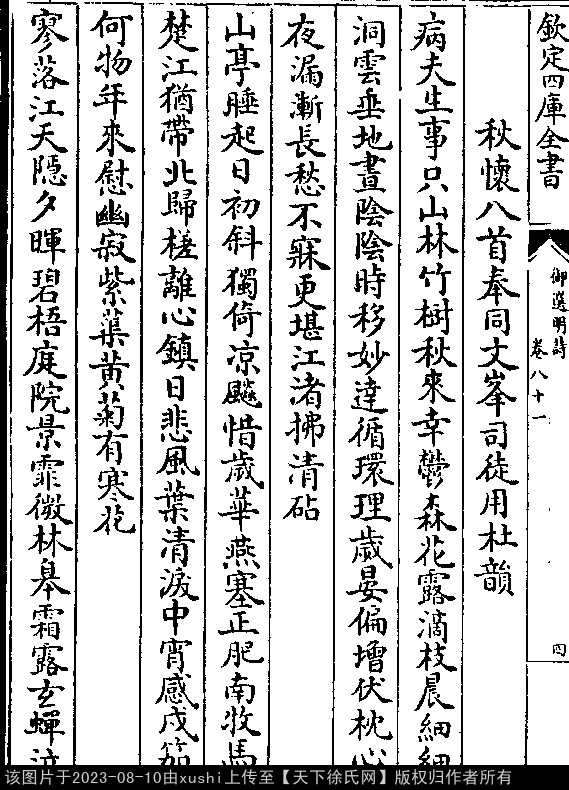 欽定四庫全書
御選明詩
卷八十一
四
秋懷八首奉同丈峯司徒用杜韻
病夫生事只山林竹樹秋來幸鬱森花露滴枝晨細細
洞雲垂地晝陰陰時移妙達循環理歲晏偏增伏枕心
夜漏漸長愁不寐更堪江渚拂清砧
山亭睡起日初斜獨倚凉飈惜歲華燕塞正肥南牧馬
楚江猶帶北歸槎離心鎮日悲風葉清淚中宵感戍笳
何物年來慰幽寂紫萸黃菊有寒花
寥落江天隱夕暉碧梧庭院景霏微林臯霜露玄蟬
该图片于2023-08-10由xushi上传至【天下徐氏网】版权归作者所有